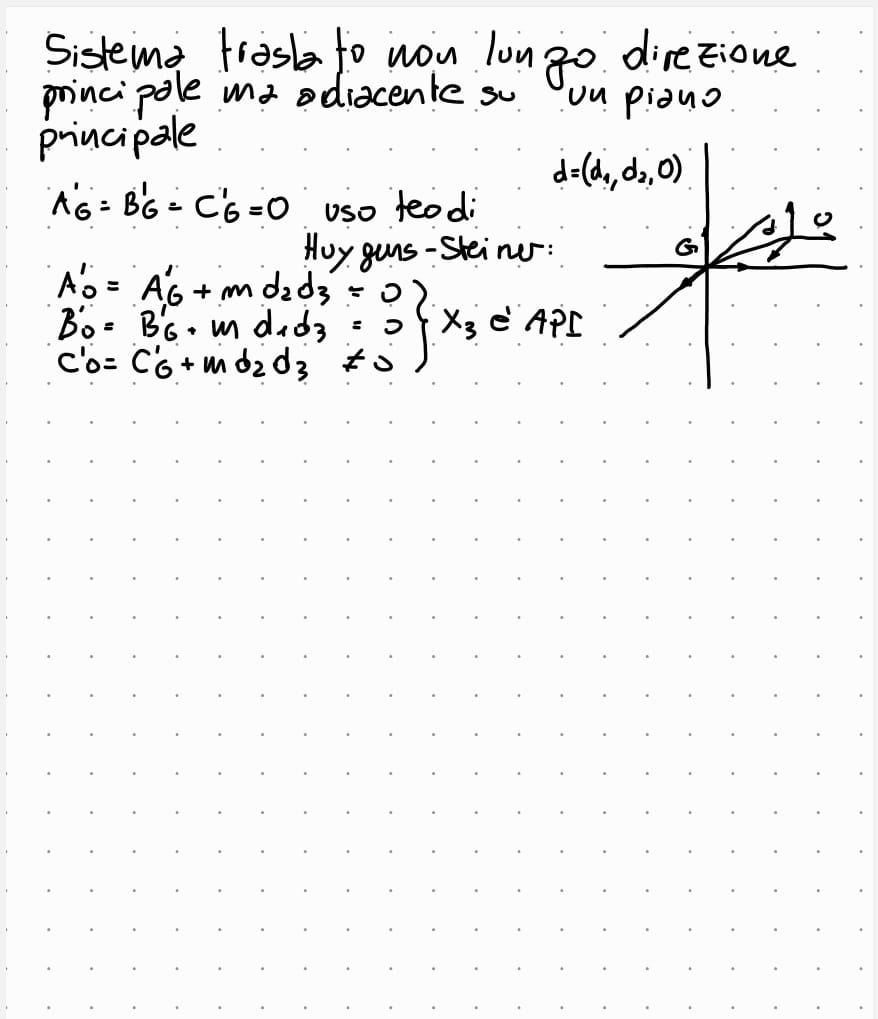 Sistema traslato non lungo direzione
principale ma adiacente su un piano
principale
d=(d₁, d₂, 0)
A'G = B'G = C'G = 0 uso teo di
Huygens-Steiner:
d O
G
A'o = A'G + m d₂d₃ = 0
B'o = B'G + m d₁d₃ = 0 } X₃ è API
C'o = C'G + m d₂ d₃ ≠ 0